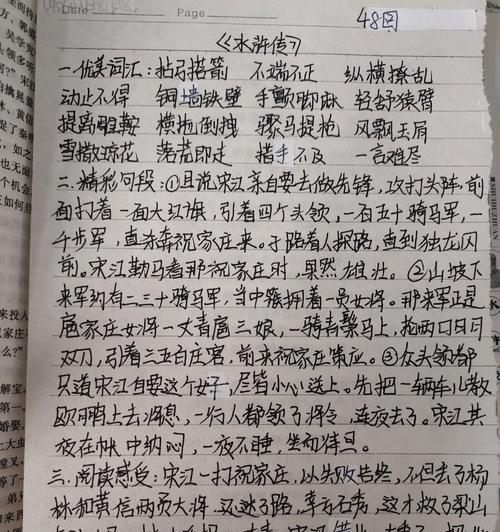 Date
Page
48回
《水浒传》
一.优美词汇：拈弓搭箭 不端不正 纵横撩乱
动止不得 铜墙铁壁 手颤脚麻 轻舒猿臂
提高眼鞍 横拖倒拽 骤马提枪 风飘玉屑
雪撒琼花 落荒即走 措手不及 一言难尽
二.精彩句段：①且说宋江亲自要去做先锋，攻打头阵，前
面打着一面大红旗，引着四个头领，一百五十骑马军，一
千步军，直杀奔祝家庄来。于路着人探路，直到独龙冈
前。宋江勒马看那祝家庄时，果然雄壮。②山坡下
来军约有二三十骑马军，当中簇拥着一员女将。那来军正是
扈家庄女将一丈青扈三娘，一骑青鬃马上，抡两口日月
双刀，引着三五百庄客，前来祝家庄策应。③众头领都
只道宋江自要这个女子，尽皆小心送上。先把一辆车儿教
欧鹏上去将息，一行人都领了将令，连夜去了。宋江其
夜在帐中纳闷，一夜不睡，坐而待旦。
三.阅读感受：宋江一打祝家庄，以失败告终，不但去了杨
林和黄信两员大将，还迷了路，幸亏石秀，这才救了梁山